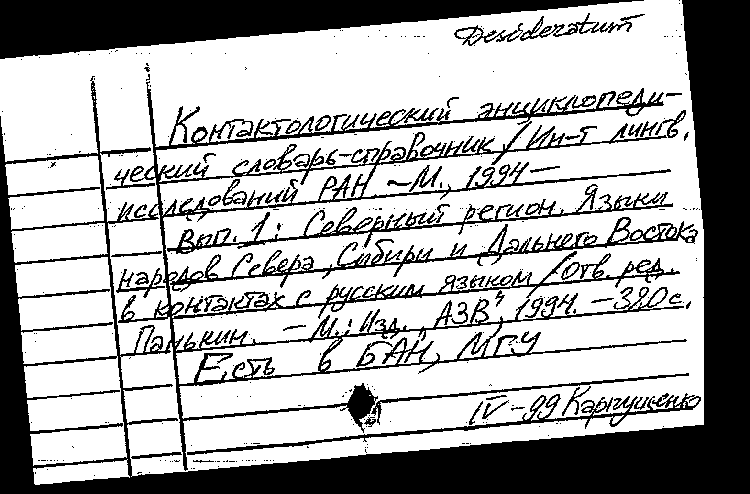 Desideratum
Контактологический энциклопеди-
ческий словарь-справочник / Ин-т лингв.
исследований РАН. – М., 1994 –
Вып. 1: Северный регион. Языки
народов Севера, Сибири и Дальнего Востока
в контактах с русским языком / Отв. ред.
Панькин. – М.: Изд. „АЗВ", 1994. – 380 с.
Есть в БАН, МГУ
IV-99 Карпущенко